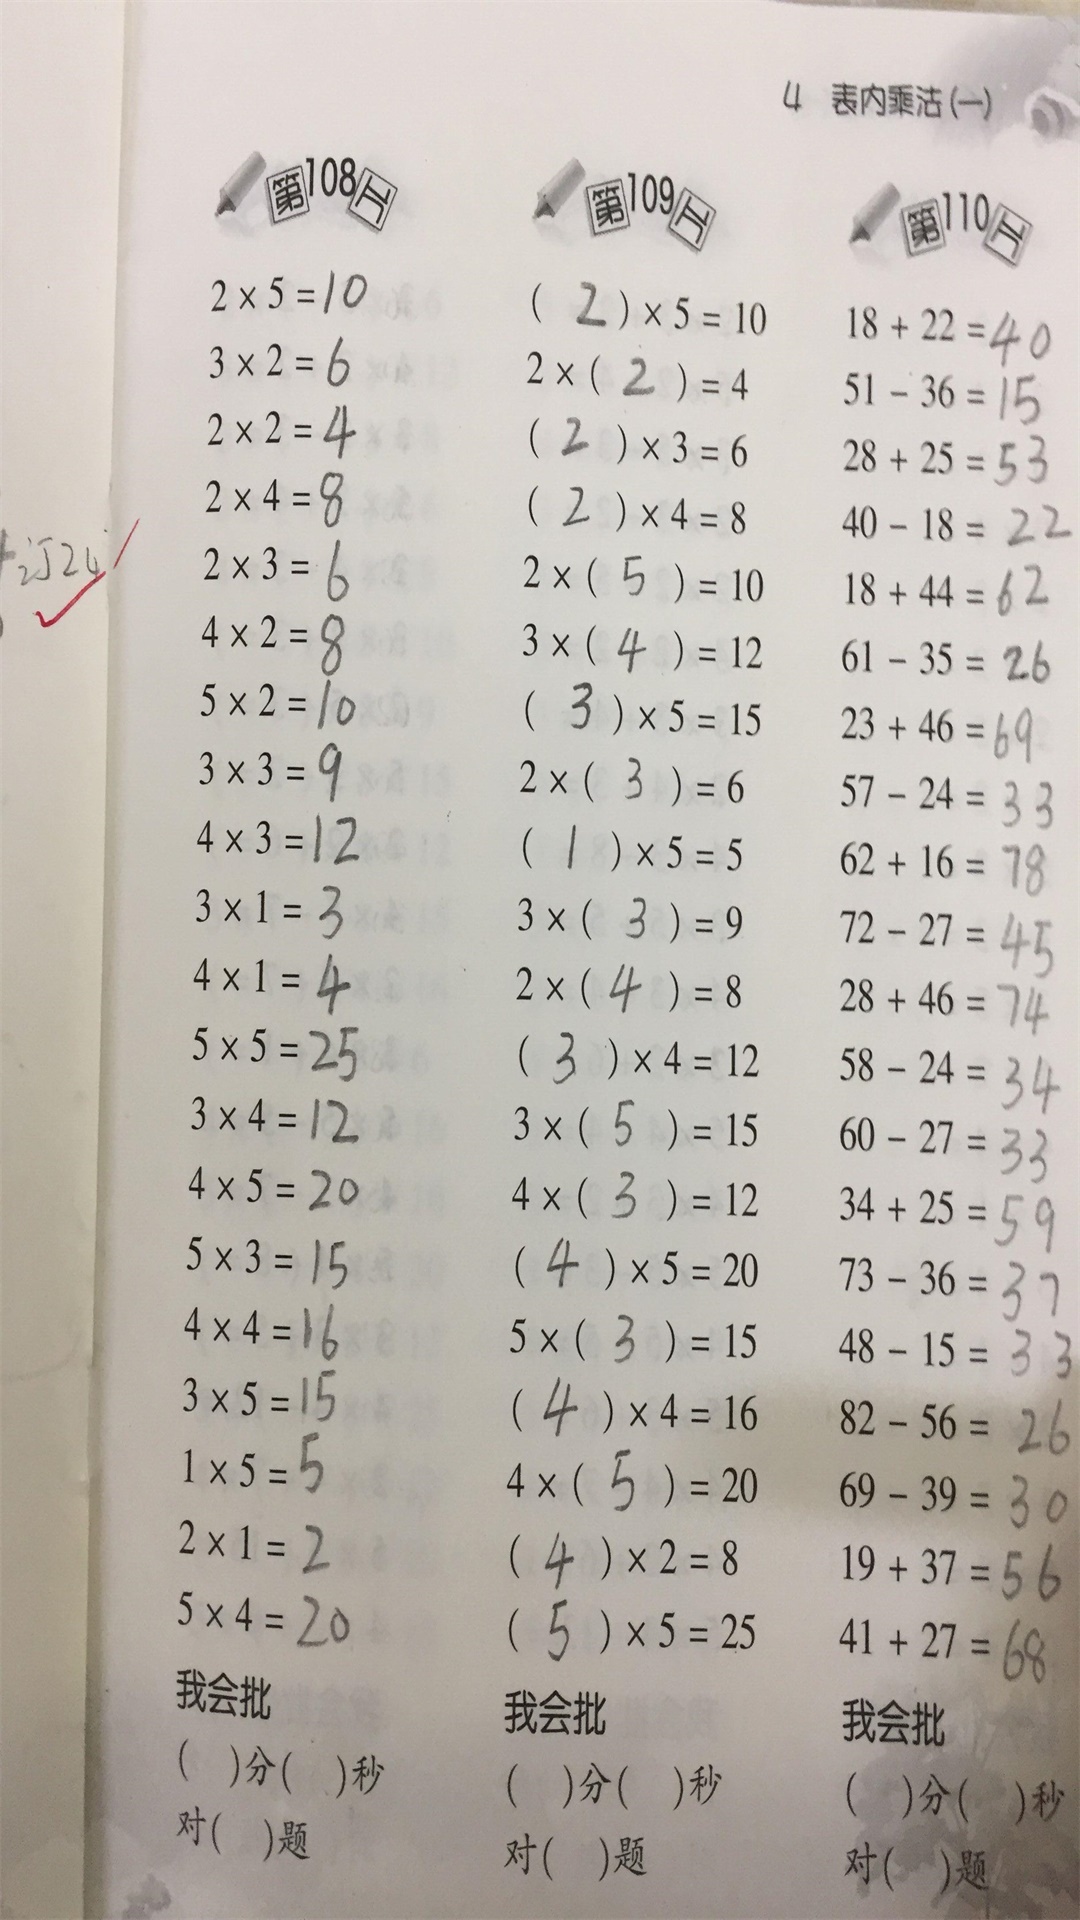 4 表内乘法(一)
第108工
2 × 5 = 10
3 × 2 = 6
2 × 2 = 4
2 × 4 = 8
2 × 3 = 6
4 × 2 = 8
5 × 2 = 10
3 × 3 = 9
4 × 3 = 12
3 × 1 = 3
4 × 1 = 4
5 × 5 = 25
3 × 4 = 12
4 × 5 = 20
5 × 3 = 15
4 × 4 = 16
3 × 5 = 15
1 × 5 = 5
2 × 1 = 2
5 × 4 = 20
我会批
( )分( )秒
对( )题
第109工
( 2 ) × 5 = 10
2 × ( 2 ) = 4
( 2 ) × 3 = 6
( 2 ) × 4 = 8
2 × ( 5 ) = 10
3 × ( 4 ) = 12
( 3 ) × 5 = 15
2 × ( 3 ) = 6
( 1 ) × 5 = 5
3 × ( 3 ) = 9
2 × ( 4 ) = 8
( 3 ) × 4 = 12
3 × ( 5 ) = 15
4 × ( 3 ) = 12
( 4 ) × 5 = 20
5 × ( 3 ) = 15
( 4 ) × 4 = 16
4 × ( 5 ) = 20
( 4 ) × 2 = 8
( 5 ) × 5 = 25
我会批
( )分( )秒
对( )题
第110工
18 + 22 = 40
51 − 36 = 15
28 + 25 = 53
40 − 18 = 22
18 + 44 = 62
61 − 35 = 26
23 + 46 = 69
57 − 24 = 33
62 + 16 = 78
72 − 27 = 45
28 + 46 = 74
58 − 24 = 34
60 − 27 = 33
34 + 25 = 59
73 − 36 = 37
48 − 15 = 33
82 − 56 = 26
69 − 39 = 30
19 + 37 = 56
41 + 27 = 68
我会批
( )分( )秒
对( )题
订24